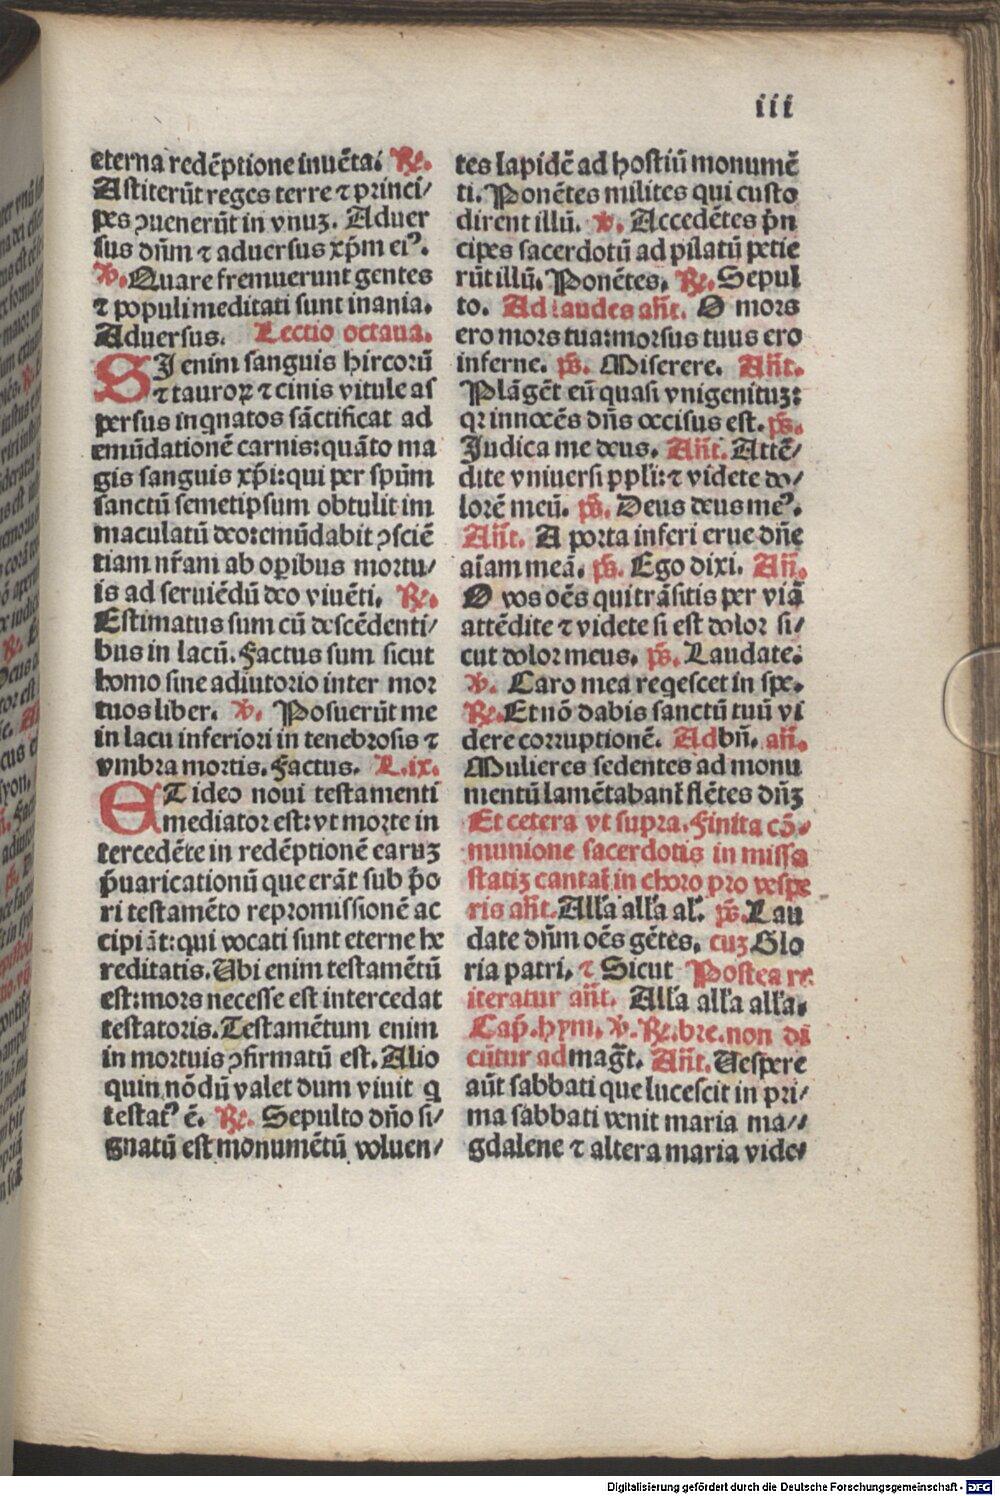 iii
eterna redēptione inuēta. ℟.
Astiterūt reges terre ⁊ princi/
pes ꝯuenerūt in vnuꝫ. Aduer
sus dn̄m ⁊ aduersus xp̄m eiꝰ.
℣. Quare fremuerunt gentes
⁊ populi meditati sunt inania.
Aduersus. Lectio octaua.
SI enim sanguis hircorū
⁊ tauroꝝ ⁊ cinis vitule as
persus inqnatos sāctificat ad
emūdationē carnis: quāto ma
gis sanguis xp̄i: qui per spūm
sanctū semetipsum obtulit im
maculatū deo: emūdabit ꝯsciē
tiam nr̄am ab oꝑibus mortu/
is ad seruiēdū deo viuēti. ℟.
Estimatus sum cū descēdenti/
bus in lacū. Factus sum sicut
homo sine adiutorio inter mor
tuos liber. ℣. Posuerūt me
in lacu inferiori in tenebrosis ⁊
vmbra mortis. Factus. L.ix.
ET ideo noui testamenti
mediator est: vt morte in
tercedēte in redēptionē earuꝫ
p̄uaricationū que erāt sub p̄o
ri testamēto repromissionē ac
cipiāt: qui vocati sunt eterne he
reditatis. Ubi enim testamētū
est: mors necesse est intercedat
testatoris. Testamētum enim
in mortuis ꝯfirmatū est. Alio
quin nōdū valet dum viuit q
testatꝰ ē. ℟. Sepulto dn̄o si/
gnatū est monumētū voluen/
tes lapidē ad hostiū monumē
ti. Ponētes milites qui custo
dirent illū. ℣. Accedētes p̄n
cipes sacerdotū ad pilatū petie
rūt illū. Ponētes. ℟. Sepul
to. Ad laudes an̄t. O mors
ero mors tua: morsus tuus ero
inferne. ps̄. Miserere. An̄t.
Plāgēt eū quasi vnigenituꝫ:
qꝛ innocēs dn̄s occisus est. ps̄.
Judica me deus. An̄t. Attē/
dite vniuersi ppli: ⁊ videte do/
lorē meū. ps̄. Deus deus meꝰ.
An̄t. A porta inferi erue dn̄e
aīam meā. ps̄. Ego dixi. An̄.
O vos oēs qui trāsitis per viā
attēdite ⁊ videte si est dolor si/
cut dolor meus. ps̄. Laudate.
℣. Caro mea reqescet in spe.
℟. Et nō dabis sanctū tuū vi
dere corruptionē. Ad bn̄. an̄.
Mulieres sedentes ad monu
mentū lamētabant̄ flētes dn̄ꝫ
Et cetera vt supra. Finita cō/
munione sacerdotis in missa
statiꝫ cantat̄ in choro pro vespe
ris an̄t. All'a all'a al'. ps̄. Lau
date dn̄m oēs gētes. cuꝫ Glo
ria patri. ⁊ Sicut Postea re
iteratur an̄t. All'a all'a all'a.
Cap̄. hym. ℣. ℟. bre. non di
cūtur ad maḡt. An̄t. Uespere
aūt sabbati que lucescit in pri/
ma sabbati venit maria ma//
gdalene ⁊ altera maria vide/
Digitalisierung gefördert durch die Deutsche Forschungsgemeinschaft - DFG